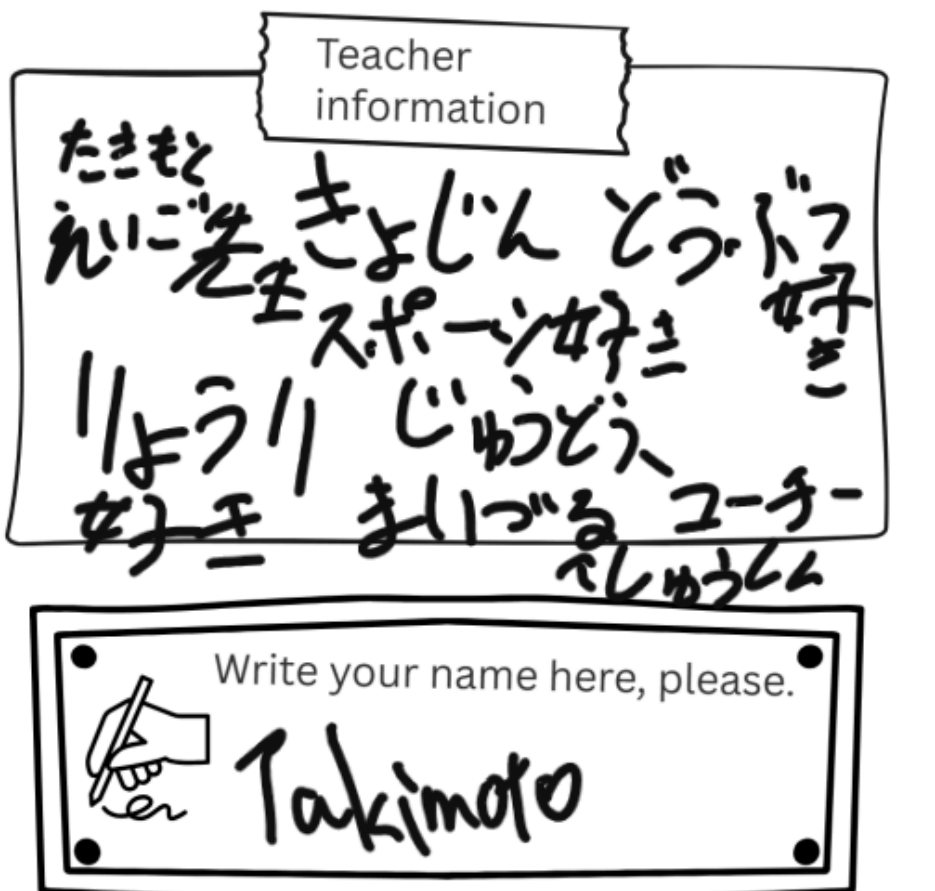 Teacher
information
たきもと
えいご先生
きょじん
どうぶつ
好き
スポーツ好き
りょうり
好き
じゅうどう、
まいづる
コーチー
↑しゅうしん
Write your name here, please.
Takimoto